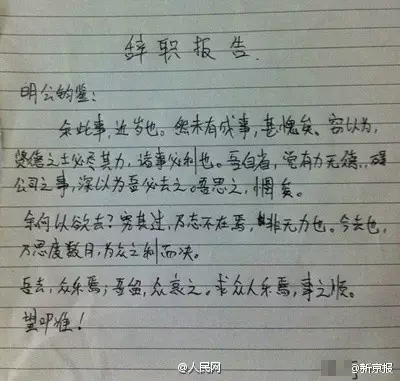 辞职报告
明公钧鉴:
余此事,近岁也。然未有成事,甚愧矣。容以为,
贤德之士必尽其力,诸事必利也。吾自省,觉有力无德,碍
公司之事,深以为吾必去之。吾思之,惘矣。
余何以欲去?穷其过,乃志不在焉,非无力也。今去也,
乃思度数月,为众之利而决。
吾去,众乐焉;吾留,众哀之。求众人乐焉,事之顺。
望叩准!
@人民网
@新京报